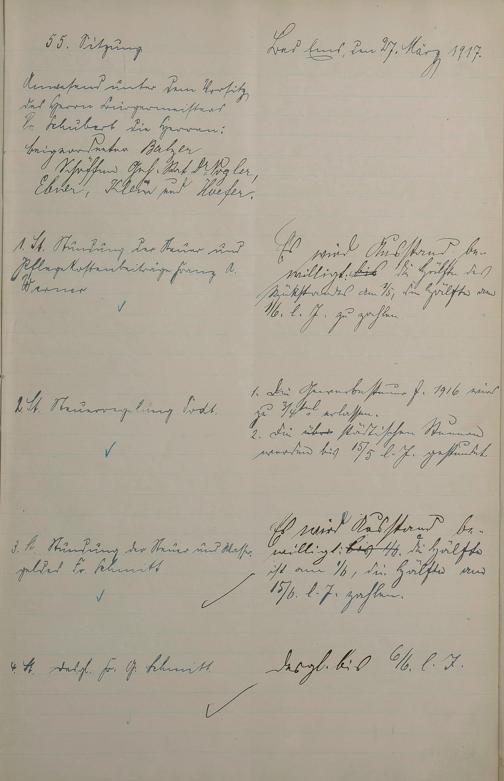 55. Sitzung
Bad Ems, den 27. März 1917.
Anwesend unter dem Vorsitz
des Herrn Bürgermeisters
Dr. Schubert die Herren:
Beigeordneter Balzer
Schöffen Geh. Rat Dr. Vogler,
Ebner, Klein und Hoefer.
1. St. Stundung der Steuer und
Pflegekostenbeiträge Franz
Werner
Es wird Ausstand be-
willigt: bis die Hälfte des
Rückstandes am die Hälfte am
l. J. zu zahlen
2. St. Steuerregelung Todt.
1. Die Gewerbesteuer f. 1916 wird
zu 3/4 erlassen.
2. Die städtischen Steuern
werden bis 15/5 l. J. gestundet
3. St. Stundung der Steuer und
geldes Fr. Schmitt
Es wird Ausstand be-
willigt: bis die Hälfte
ist am 1/6, die Hälfte am
15/6. l. J. zahlen.
4. St. desgl. Fr. G. Schmitt
desgl. bis 6/6. l. J.